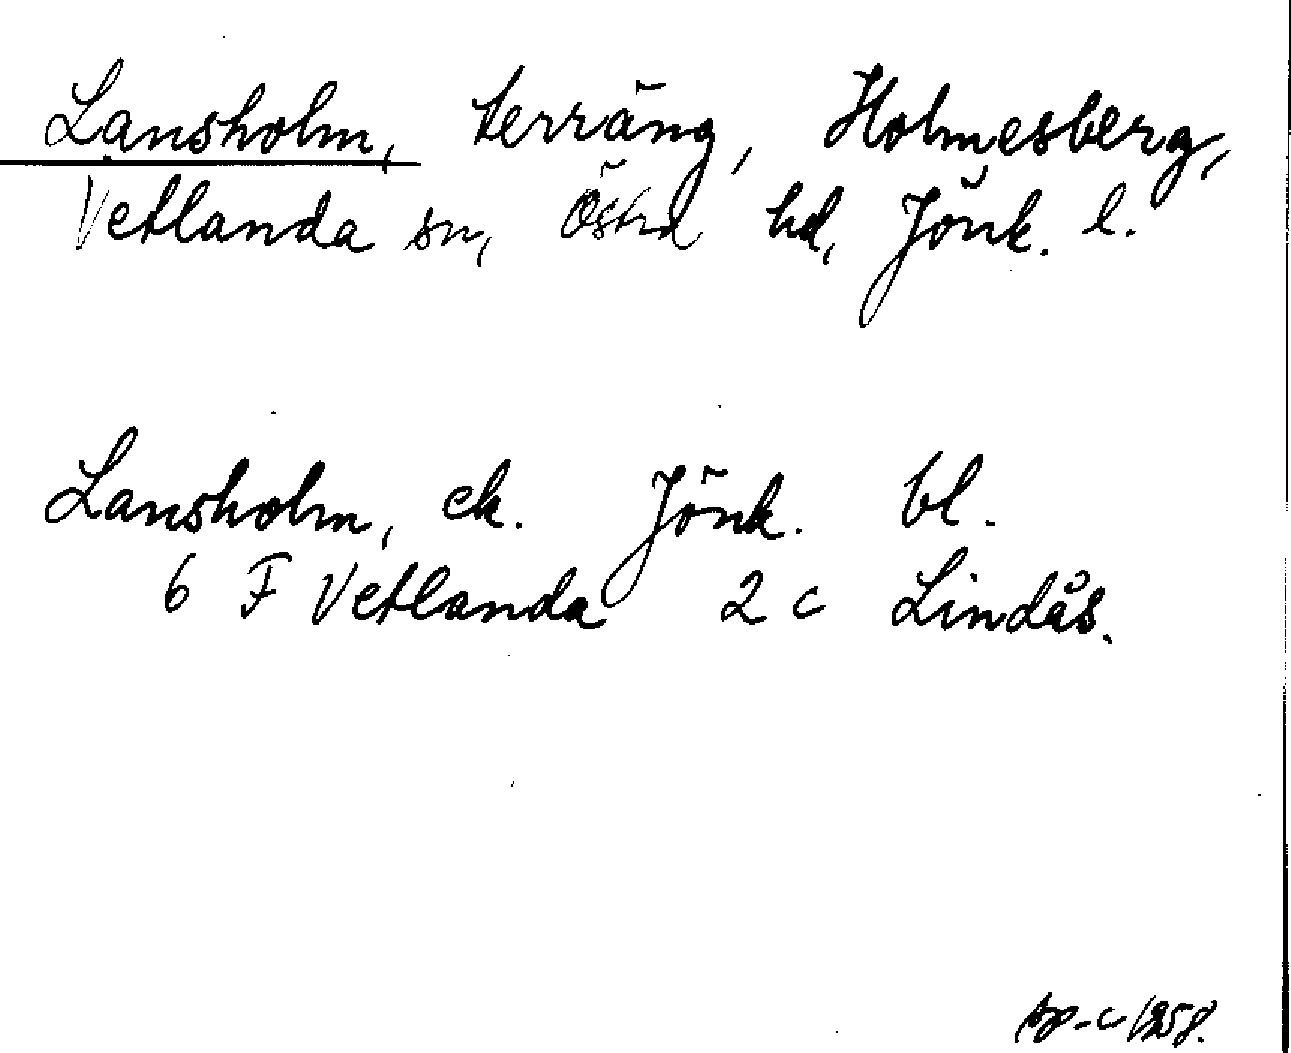 Lansholm, terräng, Holmesberg,
Vetlanda sn, Östra hd, Jönk. l.
Lansholm, ek. Jönk. bl.
6 F Vetlanda 2 c Lindås.